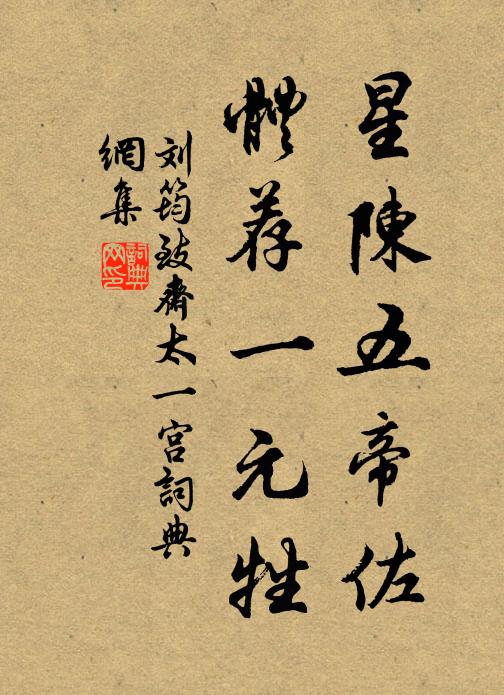 星陳五帝佐
體荐一元牲
刘筠致齋太一宫詞典
網集
詞典网印